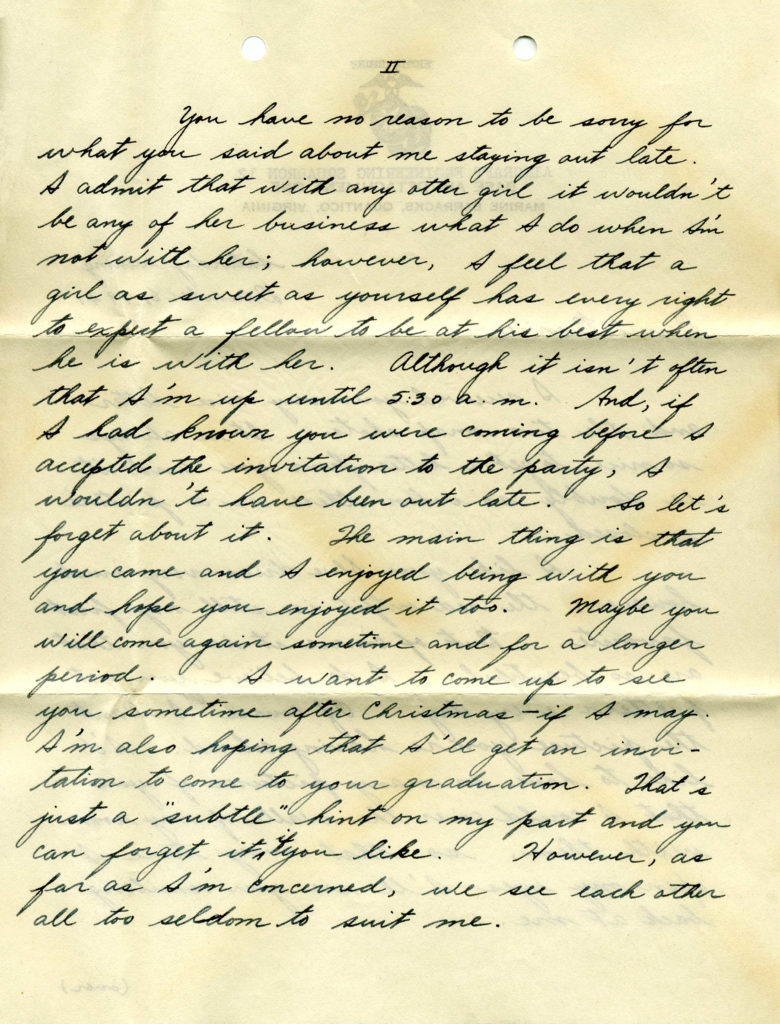 II
You have no reason to be sorry for
what you said about me staying out late.
I admit that with any other girl it wouldn't
be any of her business what I do when I'm
not with her; however, I feel that a
girl as sweet as yourself has every right
to expect a fellow to be at his best when
he is with her. Although it isn't often
that I'm up until 5:30 a.m. And, if
I had known you were coming before I
accepted the invitation to the party, I
wouldn't have been out late. So let's
forget about it. The main thing is that
you came and I enjoyed being with you
and hope you enjoyed it too. Maybe you
will come again sometime and for a longer
period. I want to come up to see
you sometime after Christmas—if I may.
I'm also hoping that I'll get an invi-
tation to come to your graduation. That's
just a "subtle" hint on my part and you
can forget it, if you like. However, as
far as I'm concerned, we see each other
all too seldom to suit me.